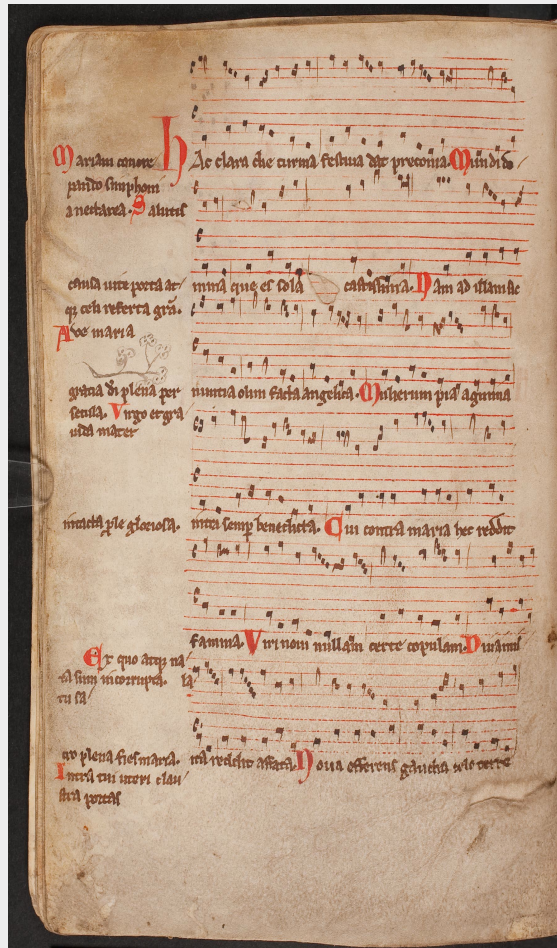 Mariam conore
pando simphoni
a nectarea. Salutis
Hac clara die turma festiva dat preconia. Mundi do
causa vite porta at
q celi referta grã.
Ave maria
mina que es sola castissima. Nam ad istam sic
gracia di plena per
secula. Virgo et gra
vida mater
nuncia olim facta angelica. Mulierum pia agmina
intacta ple gloriosa.
intra semp benedicta. Cui contra maria hec reddit
famina. Viri novi nullam certe copulam. Divanii
Ex quo atq na
ta sum incorrupta. la
tu sa
cro plena fies maria.
Intra tui uteri clau
stra portas
ita reddit affata. Nova efferens gaudia terre